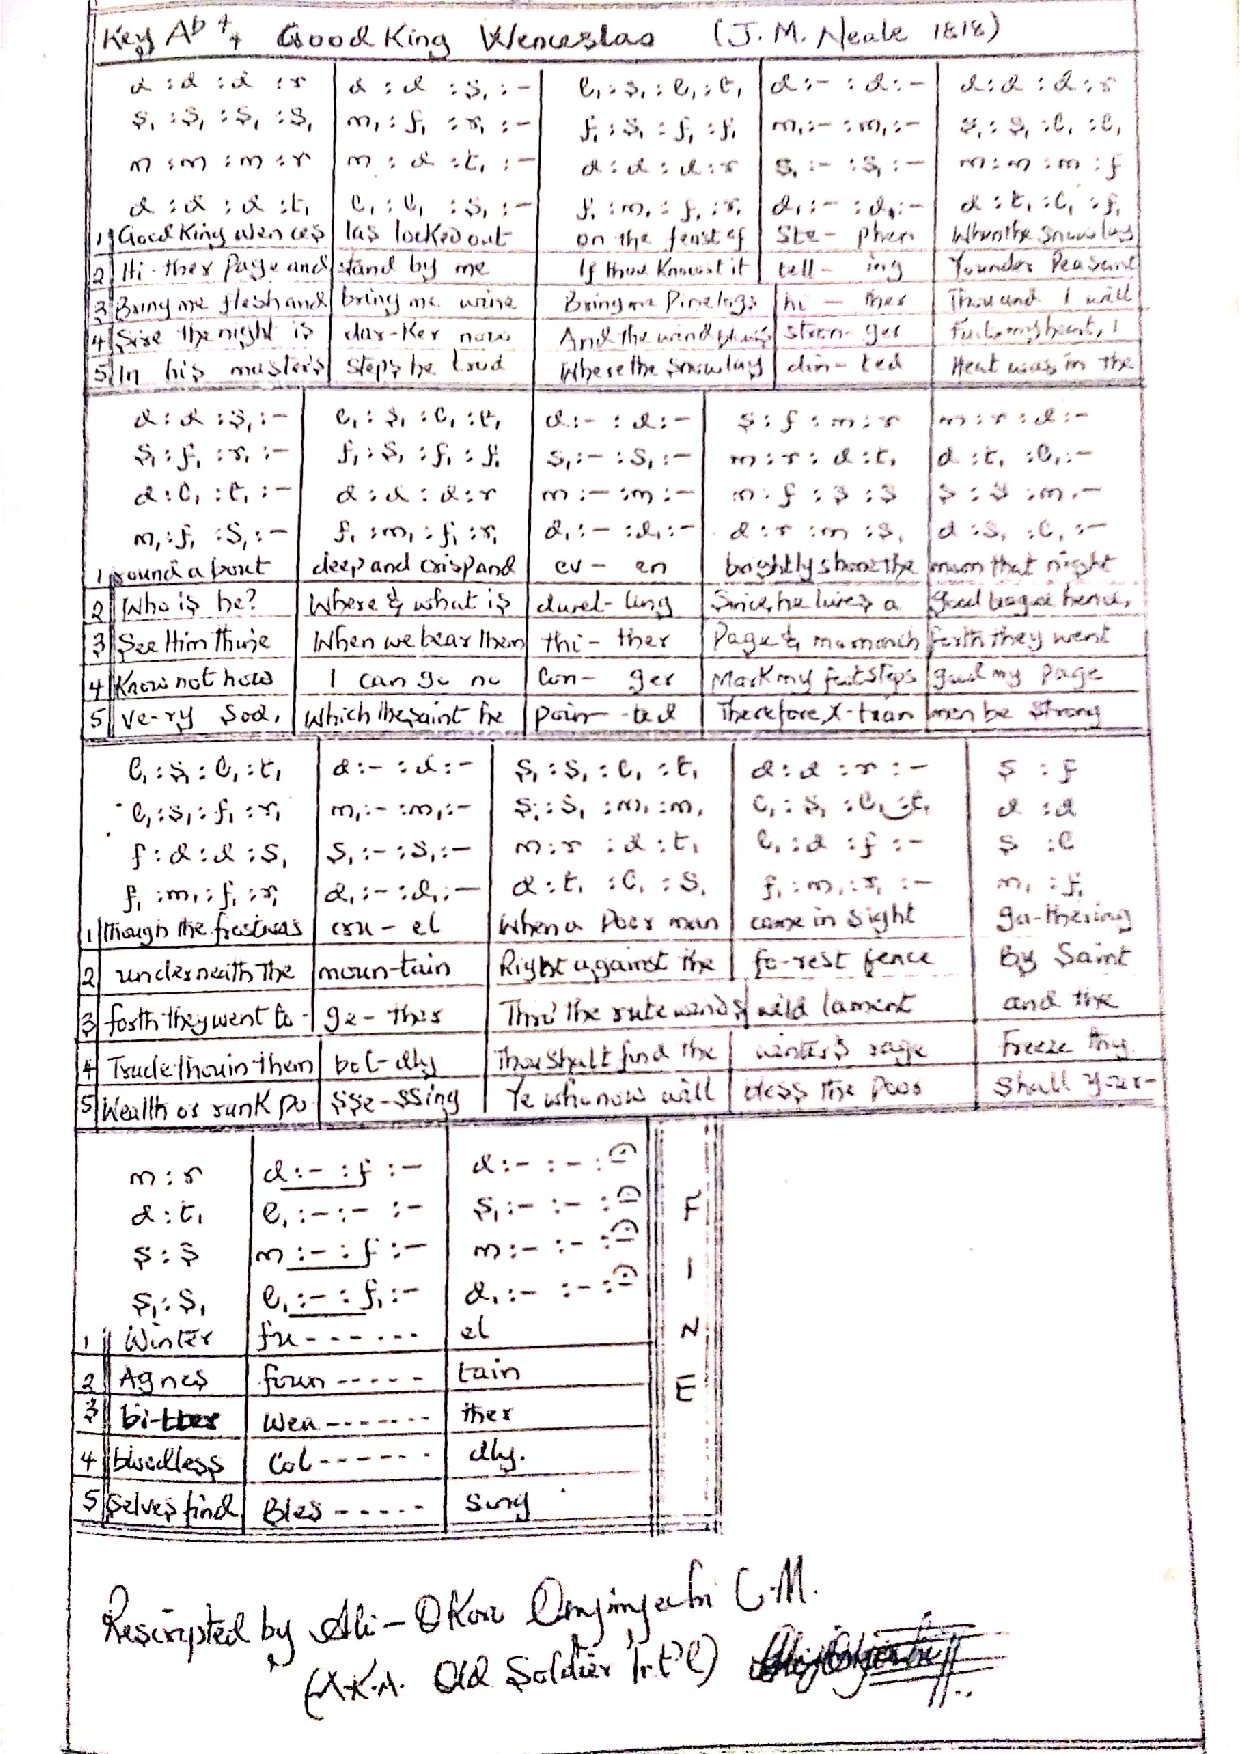 Key Ab 4/4 Good King Wenceslas (J. M. Neale 1818)
d : d : d : r | d : d : s, : – | l, : s, : l, : t, | d : – : d : – | d : d : d : r
s, : s, : s, : s, | m, : f, : r, : – | f, : s, : f, : f, | m, : – : m, : – | s, : s, : l, : l,
m : m : m : r | m : d : t, : – | d : d : d : r | s, : – : s, : – | m : m : m : f
d : d : d : t, | l, : l, : s, : – | f, : m, : f, : r, | d, : – : d, : – | d : t, : l, : f,
1 Good King Wences | las looked out | on the feast of | Ste - phen | When the snow lay
2 Hi - ther Page and | stand by me | If thou Knowst it | tell - ing | Younder Peasant
3 Bring me flesh and | bring me wine | Bring me Pine logs | hi - ther | Thou and I will
4 Sire the night is | dar-Ker now | And the wind blows | stron-ger | Fails my heart, I
5 In his master's | steps he trod | Where the snow lay | din - ted | Heat was in the
d : d : s, : – | l, : s, : l, : t, | d : – : d : – | s : f : m : r | m : r : d : –
s, : f, : r, : – | f, : s, : f, : f, | s, : – : s, : – | m : r : d : t, | d : t, : l, : –
d : l, : t, : – | d : d : d : r | m : – : m : – | m : f : s : s | s : s : m : –
m, : f, : s, : – | f, : m, : f, : r, | d, : – : d, : – | d : r : m : s, | d : s, : l, : –
1 round a bout | deep and crisp and | ev - en | brightly shone the | moon that night
2 Who is he? | Where & what is | dwel - ling | Since, he lives a | good league hence,
3 See Him thine | When we bear them | thi - ther | Page & monarch | forth they went
4 Know not how | I can go no | Lon - ger | Mark my footsteps | good my page
5 ve-ry Sod, | which the saint he | poin - ted | Therefore, X-tian | men be strong
l, : s, : l, : t, | d : – : d : – | s, : s, : l, : t, | d : d : r : – | s : f
l, : s, : f, : r, | m, : – : m, : – | s, : s, : m, : m, | l, : s, : l, : t, | d : d
f : d : d : s, | s, : – : s, : – | m : r : d : t, | l, : d : f : – | s : l
f, : m, : f, : r, | d, : – : d, : – | d : t, : l, : s, | f, : m, : r, : – | m, : f,
1 though the frost was | cru - el | When a Poor man | came in Sight | ga-thering
2 underneath the | moun-tain | Right against the | fo-rest fence | By Saint
3 forth they went to - | ge - ther | Thro' the rute winds | wild lament | and the
4 Trade thou in them | bol-dly | Thou shalt find the | winter's rage | Freeze thy
5 Wealth or rank po | sse-ssing | Ye who now will | bless the Poor | Shall your-
m : r | d : – : f : – | d : – : – :
d : t, | l, : – : – : – | s, : – : – :
s : s | m : – : f : – | m : – : – :
s, : s, | l, : – : f, : – | d, : – : – :
1 Winter | fu - - - - - - | el
2 Agnes | foun - - - - - | tain
3 bi-tter | Wea - - - - - - - | ther
4 bloodless | Col - - - - - - | dly.
5 Selves find | Bles - - - - - | sing
FINE
Rescripted by Ali-Okoro C.M.
(A.K.A. Old Soldier Int'l)